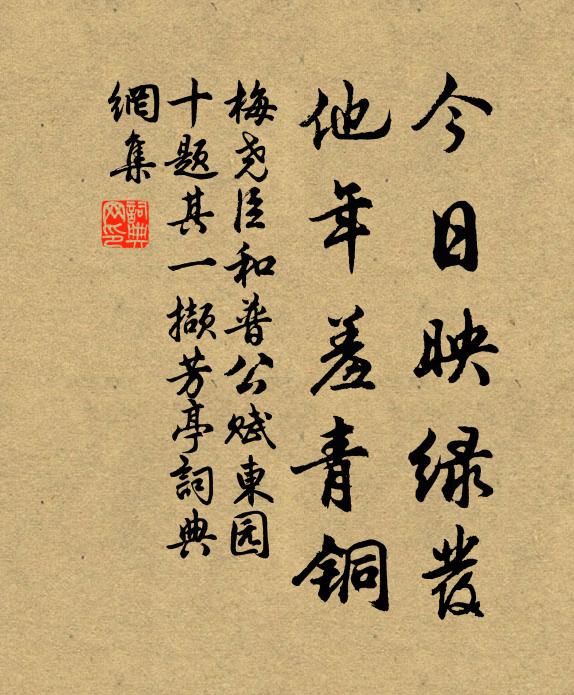 今日映绿发
他年羞青铜
梅尧臣和普公赋東园
十题其一撷芳亭詞典
網集
詞典
网印